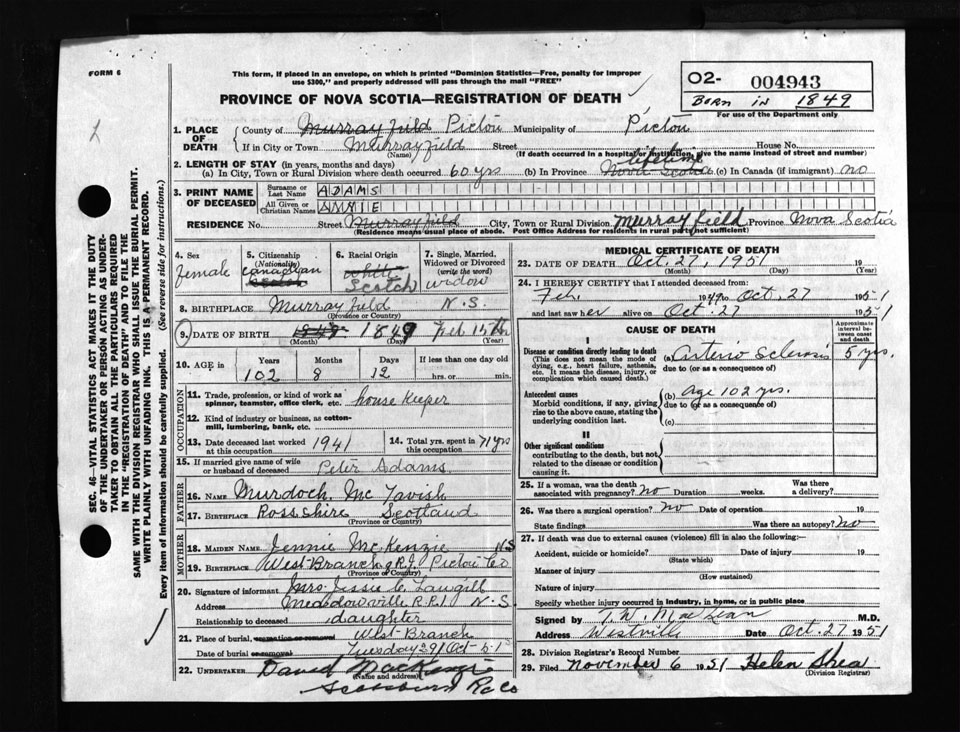 FORM 6
This form, if placed in an envelope, on which is printed "Dominion Statistics—Free, penalty for improper
use $300," and properly addressed will pass through the mail "FREE"
PROVINCE OF NOVA SCOTIA—REGISTRATION OF DEATH
02- 004943
BORN in 1849
For use of the Department only
1. PLACE OF DEATH
County of Murrayfield Pictou Municipality of Pictou
If in City or Town Murrayfield Street House No.
(Name) (If death occurred in a hospital or institution, give the name instead of street and number)
2. LENGTH OF STAY (in years, months and days)
(a) In City, Town or Rural Division where death occurred 60 yrs (b) In Province Nova Scotia lifetime (c) In Canada (if immigrant) no
3. PRINT NAME OF DECEASED
Surname or Last Name ADAMS
All Given or Christian Names ANNIE
RESIDENCE No. Street Murrayfield City, Town or Rural Division Murrayfield Province Nova Scotia
(Residence means usual place of abode. Post Office Address for residents in rural parts not sufficient)
4. Sex female
5. Citizenship (Nationality) canadian Scotch
6. Racial Origin white Scotch
7. Single, Married, Widowed or Divorced (write the word) widow
8. BIRTHPLACE Murrayfield N.S.
(Province or Country)
9. DATE OF BIRTH 1849 1849 Feb 15th
(Month) (Day) (Year)
10. AGE in Years 102 Months 8 Days 12 If less than one day old hrs. or min.
OCCUPATION
11. Trade, profession, or kind of work as spinner, teamster, office clerk, etc. house keeper
12. Kind of industry or business, as cotton-mill, lumbering, bank, etc.
13. Date deceased last worked at this occupation 1941
14. Total yrs. spent in this occupation 71 yrs
15. If married give name of wife or husband of deceased Peter Adams
FATHER
16. NAME Murdoch McTavish
17. BIRTHPLACE Ross shire Scotland
(Province or Country)
MOTHER
18. MAIDEN NAME Jennie McKenzie N.S
19. BIRTHPLACE West Branch R.J. Pictou Co
(Province or Country)
20. Signature of informant Mrs Jessie C. Langill
Address Meadowville R.R.1. N.S.
Relationship to deceased daughter
21. Place of burial, cremation or removal West Branch
Date of burial or removal Tuesday 29 Oct 51
22. UNDERTAKER David MacKenzie
(Name and address)
Scotsburn
MEDICAL CERTIFICATE OF DEATH
23. DATE OF DEATH Oct. 27, 1951 19
(Month) (Day) (Year)
24. I HEREBY CERTIFY that I attended deceased from:
Feb. 1949 to Oct. 27 1951
and last saw her alive on Oct. 27 1951
CAUSE OF DEATH
Approximate interval between onset and death
I
Disease or condition directly leading to death
(This does not mean the mode of dying, e.g., heart failure, asthenia, etc. It means the disease, injury, or complication which caused death.)
(a) Arterio Sclerosis 5 yrs.
due to (or as a consequence of)
Antecedent causes
Morbid conditions, if any, giving rise to the above cause, stating the underlying condition last.
(b) age 102 yrs.
due to (or as a consequence of)
(c)
II
Other significant conditions
contributing to the death, but not related to the disease or condition causing it.
25. If a woman, was the death associated with pregnancy? no Duration weeks. Was there a delivery?
26. Was there a surgical operation? no Date of operation 19
State findings Was there an autopsy? no
27. If death was due to external causes (violence) fill in also the following:—
Accident, suicide or homicide? Date of injury 19
(State which)
Manner of injury
(How sustained)
Nature of injury
Specify whether injury occurred in industry, in home, or in public place
Signed by T.W. MacLean M.D.
Address Westville Date Oct. 27 1951
28. Division Registrar's Record Number
29. Filed November 6 1951 Helen Shea
(Division Registrar)
SEC. 46—VITAL STATISTICS ACT MAKES IT THE DUTY
OF THE UNDERTAKER OR PERSON ACTING AS UNDER-
TAKER TO OBTAIN ALL THE PARTICULARS REQUIRED
IN THE "REGISTRATION OF DEATH" AND TO FILE THE
SAME WITH THE DIVISION REGISTRAR WHO SHALL ISSUE THE BURIAL PERMIT.
WRITE PLAINLY WITH UNFADING INK. THIS IS A PERMANENT RECORD.
Every item of information should be carefully supplied. (See reverse side for instructions.)